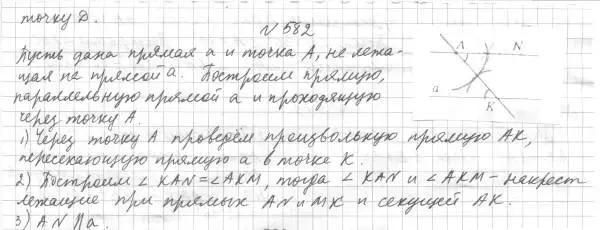 точку D.
N 582
Пусть дана прямая a и точка A, не лежа-
щая на прямой a. Построим прямую,
параллельную прямой a и проходящую
через точку A.
1) Через точку A проведём произвольную прямую AK,
пересекающую прямую a в точке K.
2) Построим ∠ KAN = ∠AKM, тогда ∠ KAN и ∠ AKM - накрест
лежащие при прямых AN и MK и секущей AK.
3) AN || a.
A N
a
K